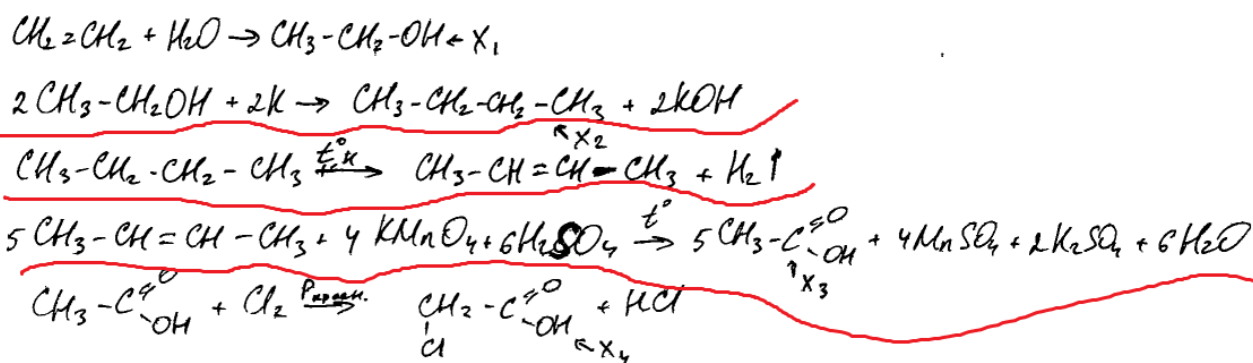 CH₂=CH₂ + H₂O → CH₃-CH₂-OH ← X₁
2 CH₃-CH₂OH + 2K → CH₃-CH₂-CH₂-CH₃ + 2KOH
↖ X₂
CH₃-CH₂-CH₂-CH₃ t°,к → CH₃-CH=CH-CH₃ + H₂↑
5 CH₃-CH=CH-CH₃ + 4 KMnO₄ + 6H₂SO₄ t° → 5 CH₃-C=O-OH + 4MnSO₄ + 2K₂SO₄ + 6H₂O
↑ X₃
CH₃-C=O-OH + Cl₂ Pкрасн. → CH₂-C=O-OH + HCl
Cl ↖ X₄